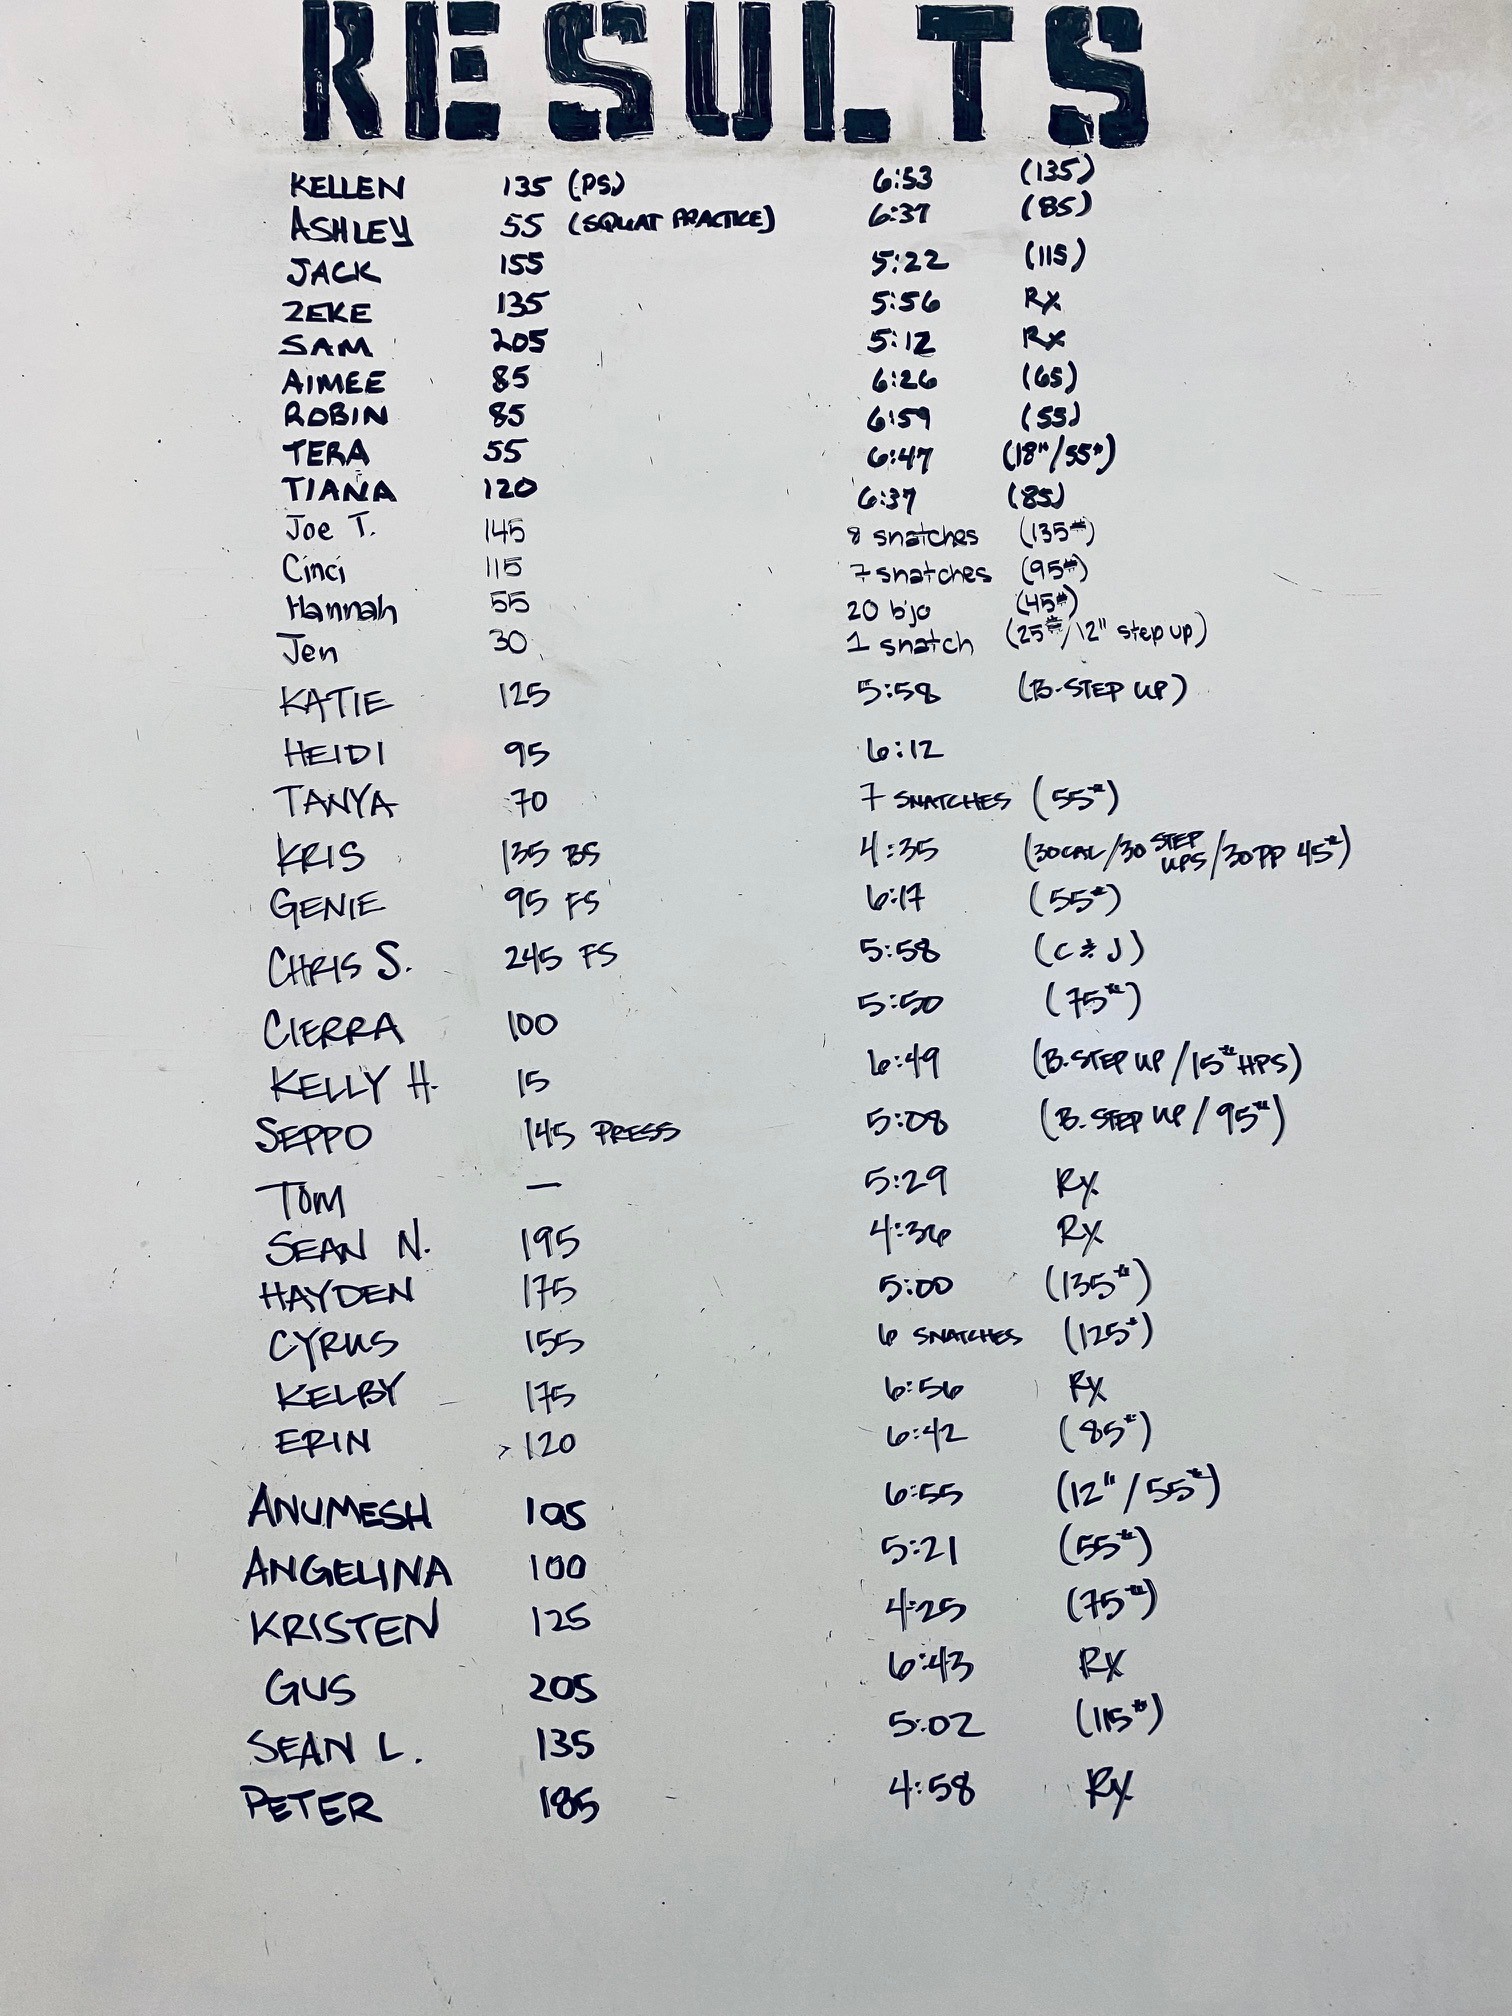 RESULTS
KELLEN 135 (PS) 6:53 (135)
ASHLEY 55 (SQUAT PRACTICE) 6:37 (85)
JACK 155 5:22 (115)
ZEKE 135 5:56 Rx
SAM 205 5:12 Rx
AIMEE 85 6:26 (65)
ROBIN 85 6:59 (55)
TERA 55 6:47 (18"/55#)
TIANA 120 6:37 (85)
Joe T. 145 8 snatches (135#)
Cinci 115 7 snatches (95#)
Hannah 55 20 bjo (45#)
Jen 30 1 snatch (25#/12" step up)
KATIE 125 5:58 (B-STEP UP)
HEIDI 95 6:12
TANYA 70 7 SNATCHES (55#)
KRIS 135 BS 4:35 (30CAL/30 STEP UPS/30PP 45#)
GENIE 95 FS 6:17 (55#)
CHRIS S. 245 FS 5:58 (C & J)
CIERRA 100 5:50 (75#)
KELLY H. 15 6:49 (B.STEP UP/15# HPS)
SEPPO 145 PRESS 5:08 (B.STEP UP/95#)
TOM — 5:29 Rx
SEAN N. 195 4:36 Rx
HAYDEN 175 5:00 (135#)
CYRUS 155 6 SNATCHES (125#)
KELBY 175 6:56 Rx
ERIN 120 6:42 (85#)
ANUMESH 105 6:55 (12"/55#)
ANGELINA 100 5:21 (55#)
KRISTEN 125 4:25 (75#)
GUS 205 6:43 Rx
SEAN L. 135 5:02 (115#)
PETER 185 4:58 Rx